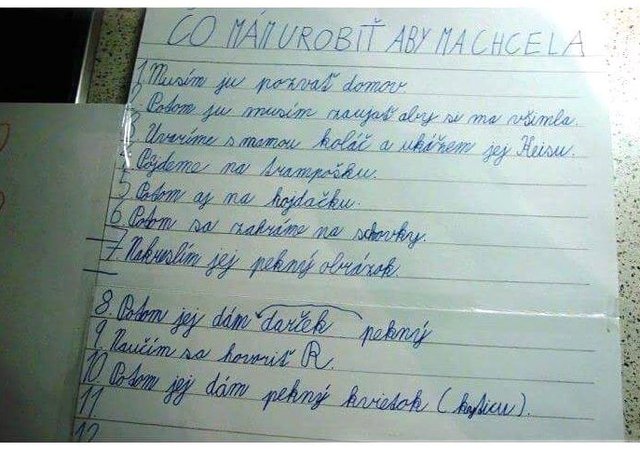 ČO MÁM UROBIŤ ABY MA CHCELA
1 Musím ju pozvať domov
2 Potom ju musím zaujať aby si ma všimla.
3 Uvaríme s mamou koláč a ukážem jej Heisu.
4 Pôjdeme na trampošku.
5 Potom aj na hojdačku.
6 Potom sa zahráme na schovky.
7. Nakreslím jej pekný obrázok
8. Potom jej dám darček pekný
9 Naučím sa hovoriť R.
10 Potom jej dám pekný kvietok (kyticu).
11
12